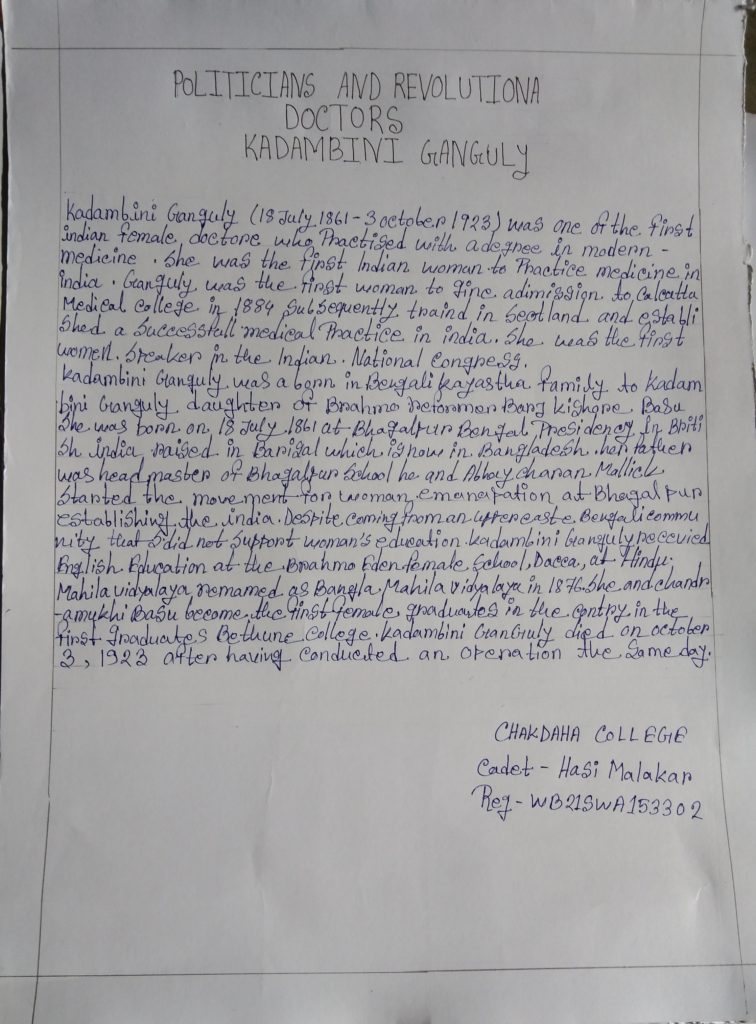 POLITICIANS AND REVOLUTIONA
DOCTORS
KADAMBINI GANGULY
Kadambini Ganguly (18 July 1861-3 october 1923) was one of the first
indian female, doctore who Practised with a degree in modern -
medicine. She was the first Indian woman to Practice medicine in
india. Ganguly was the first woman to gine adimission to Calcatta
Medical college in 1884 Subsequently traind in Scotland and establi
Shed a Successfull medical Practice in india. She was the first
women. Speaker in the Indian. National Congress.
Kadambini Ganguly was a born in Bengali Kayastha family to Kadam
bini Ganguly daughter of Brahmo reformer Barg Kishore Basu
She was born on 18 July 1861 at Bhagalpur Bengal Presidency in Briti
sh india raised in Barisal which is now in Bangladesh. her father
was headmaster of Bhagalpur School he and Abhay charan Mallick
Started the movement for woman emancipation at Bhagalpur
establishing the india. Despite coming from an upper caste Bengali commu
nity that did not Support woman's education. Kadambini Ganguly recevied
English Education at the Brahmo Eden female School, Dacca, at Hindu
Mahila vidyalaya remamed as Bangla Mahila vidyalaya in 1876. She and chandr
-amukhi Basu become the first female graduates in the contry in the
first graduates Bethune College. Kadambini Ganguly died on october
3, 1923 after having conducted an operation the same day.
CHAKDAHA COLLEGE
Cadet - Hasi Malakar
Reg - WB21SWA153302